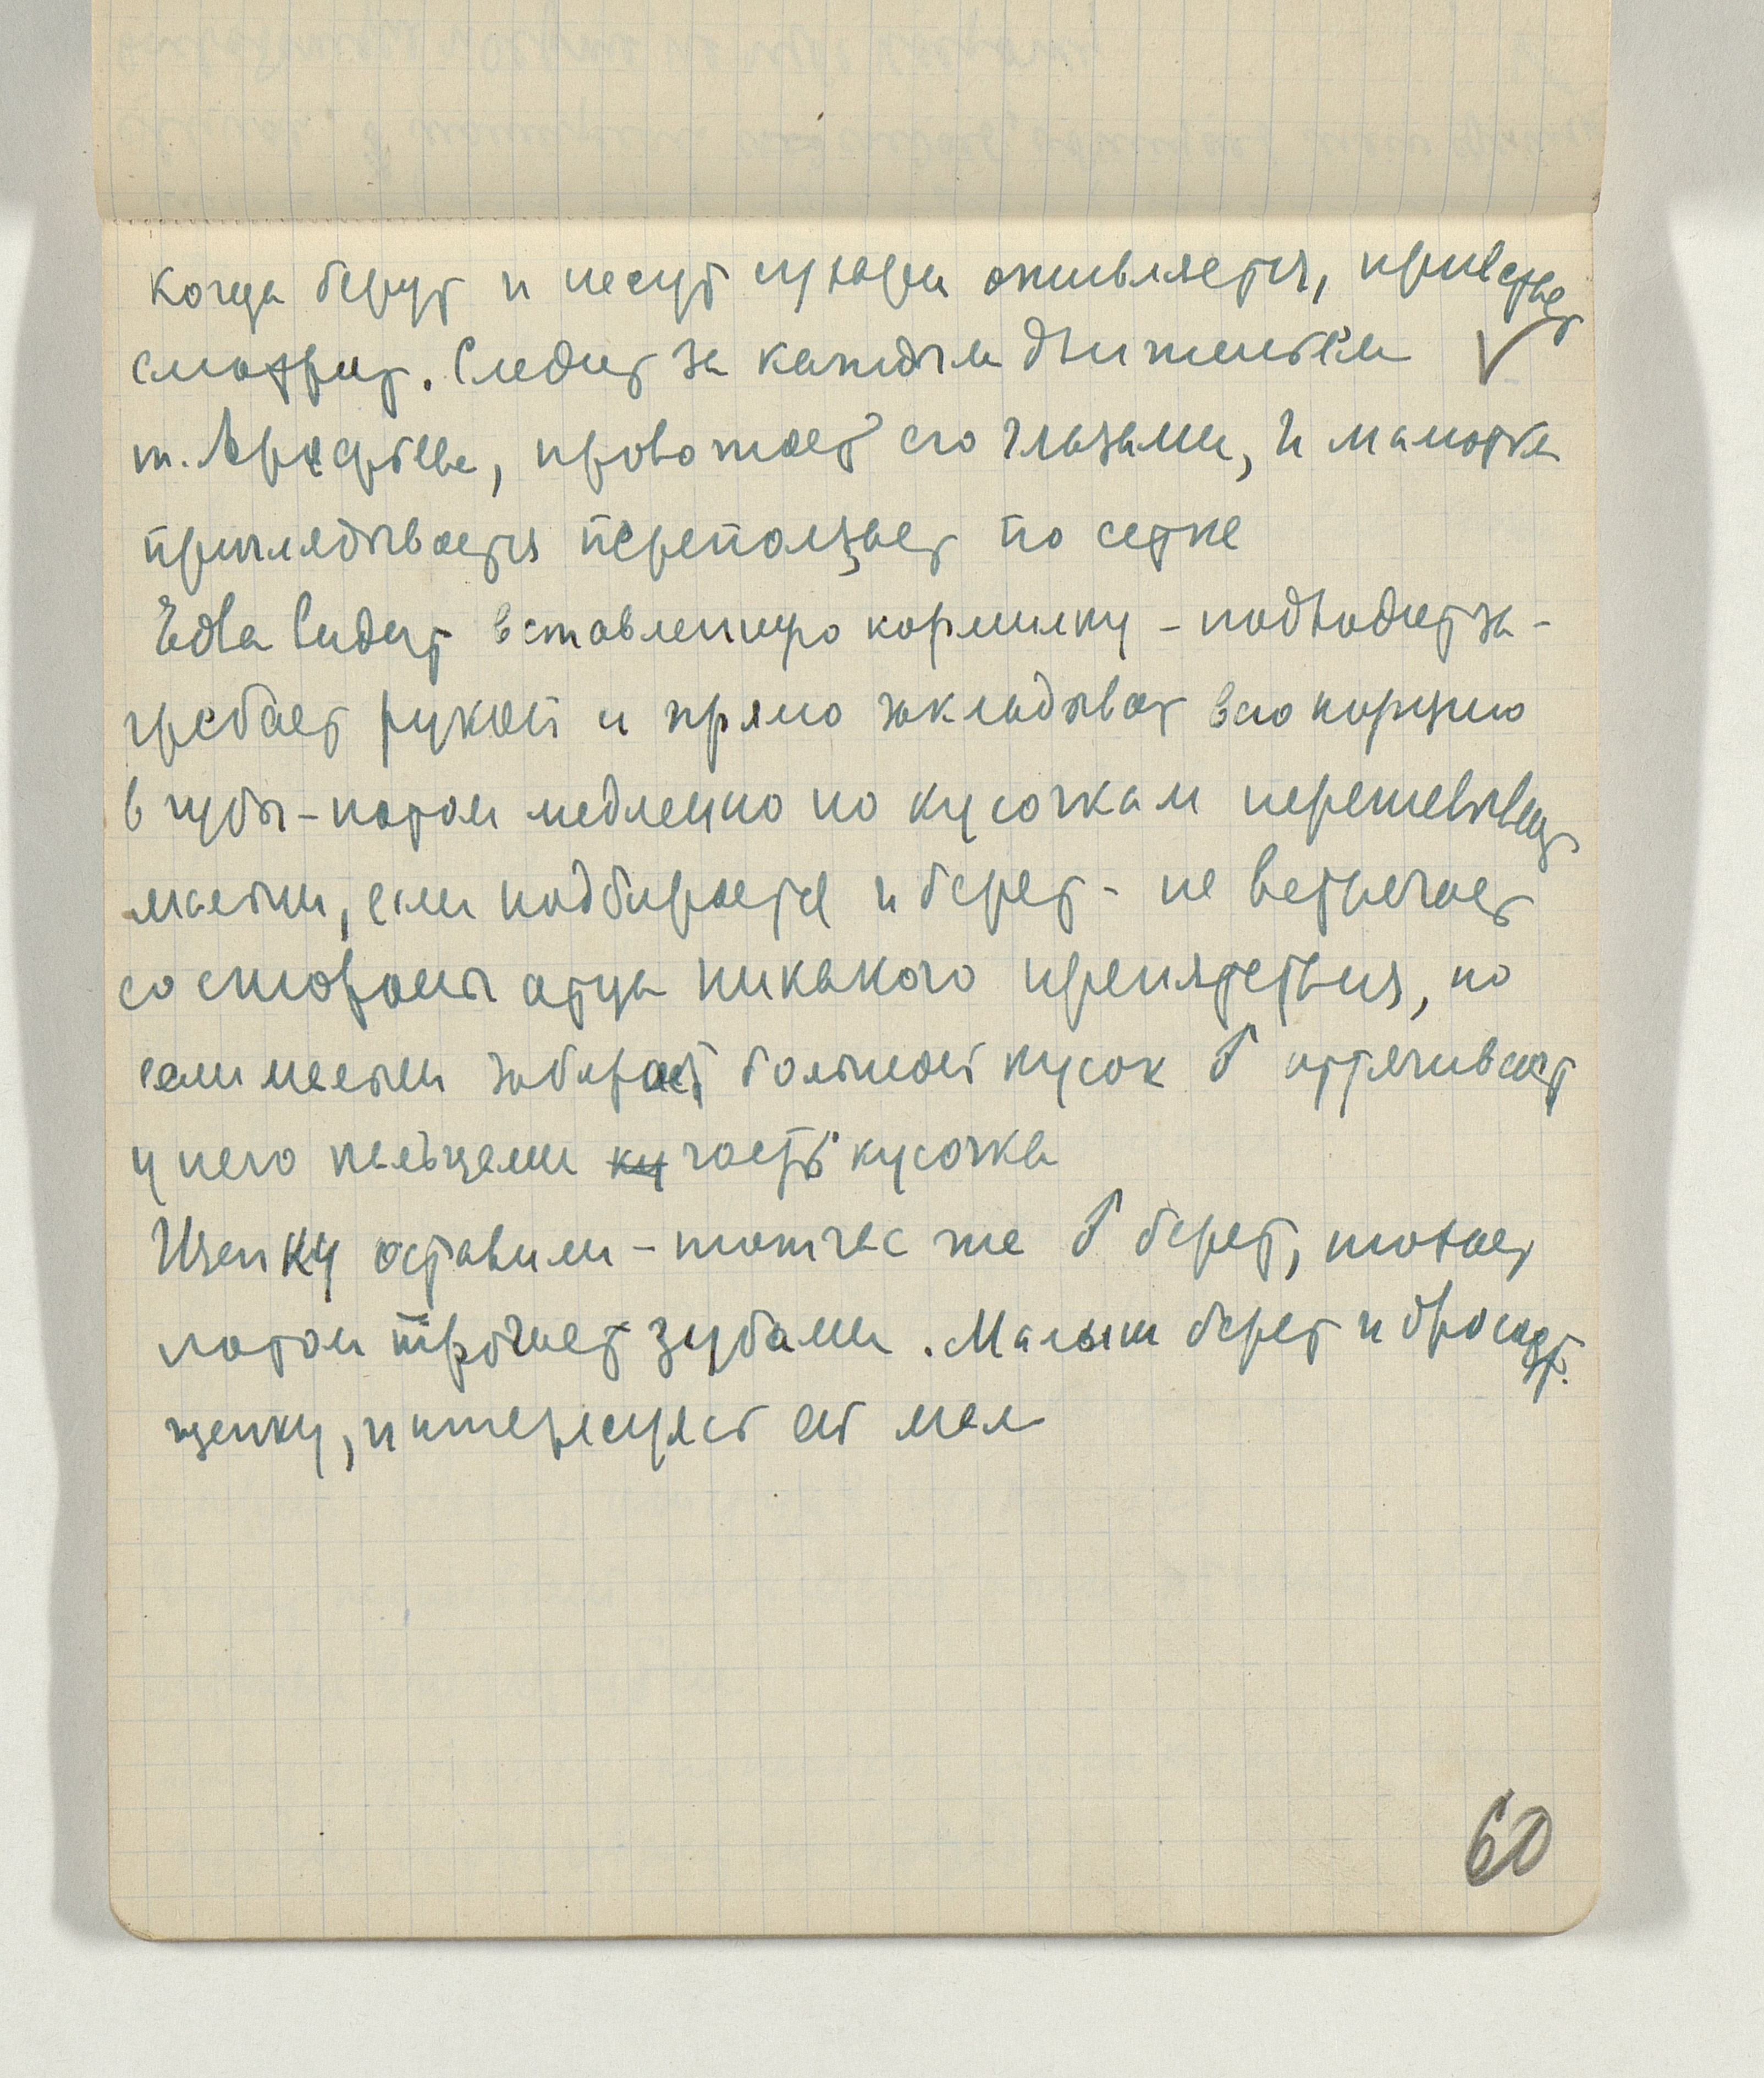 когда берут и несут сухари оживляется, привстает
смотрит. Следит за каждым движеньем ✓
т. Арефьева, провожает его глазами, и мамотка
приглядывается переползает по сетке
Едва видит вставленную кормилку – подходит за-
гребает рукой и прямо закладывает всю порцию
в губы – потом медленно по кусочкам пережевывает
малыш, если подбирается и берет – не встречает
со стороны отца никакого препятствия, но
если малыш забирает большой кусок ♂ оттягивает
у него пальцами ку часть кусочка
Щепку оставили – тотчас же ♂ берет,
потом трогает зубами. Малыш берет и бросает
щепку, интересуясь ей мал
60